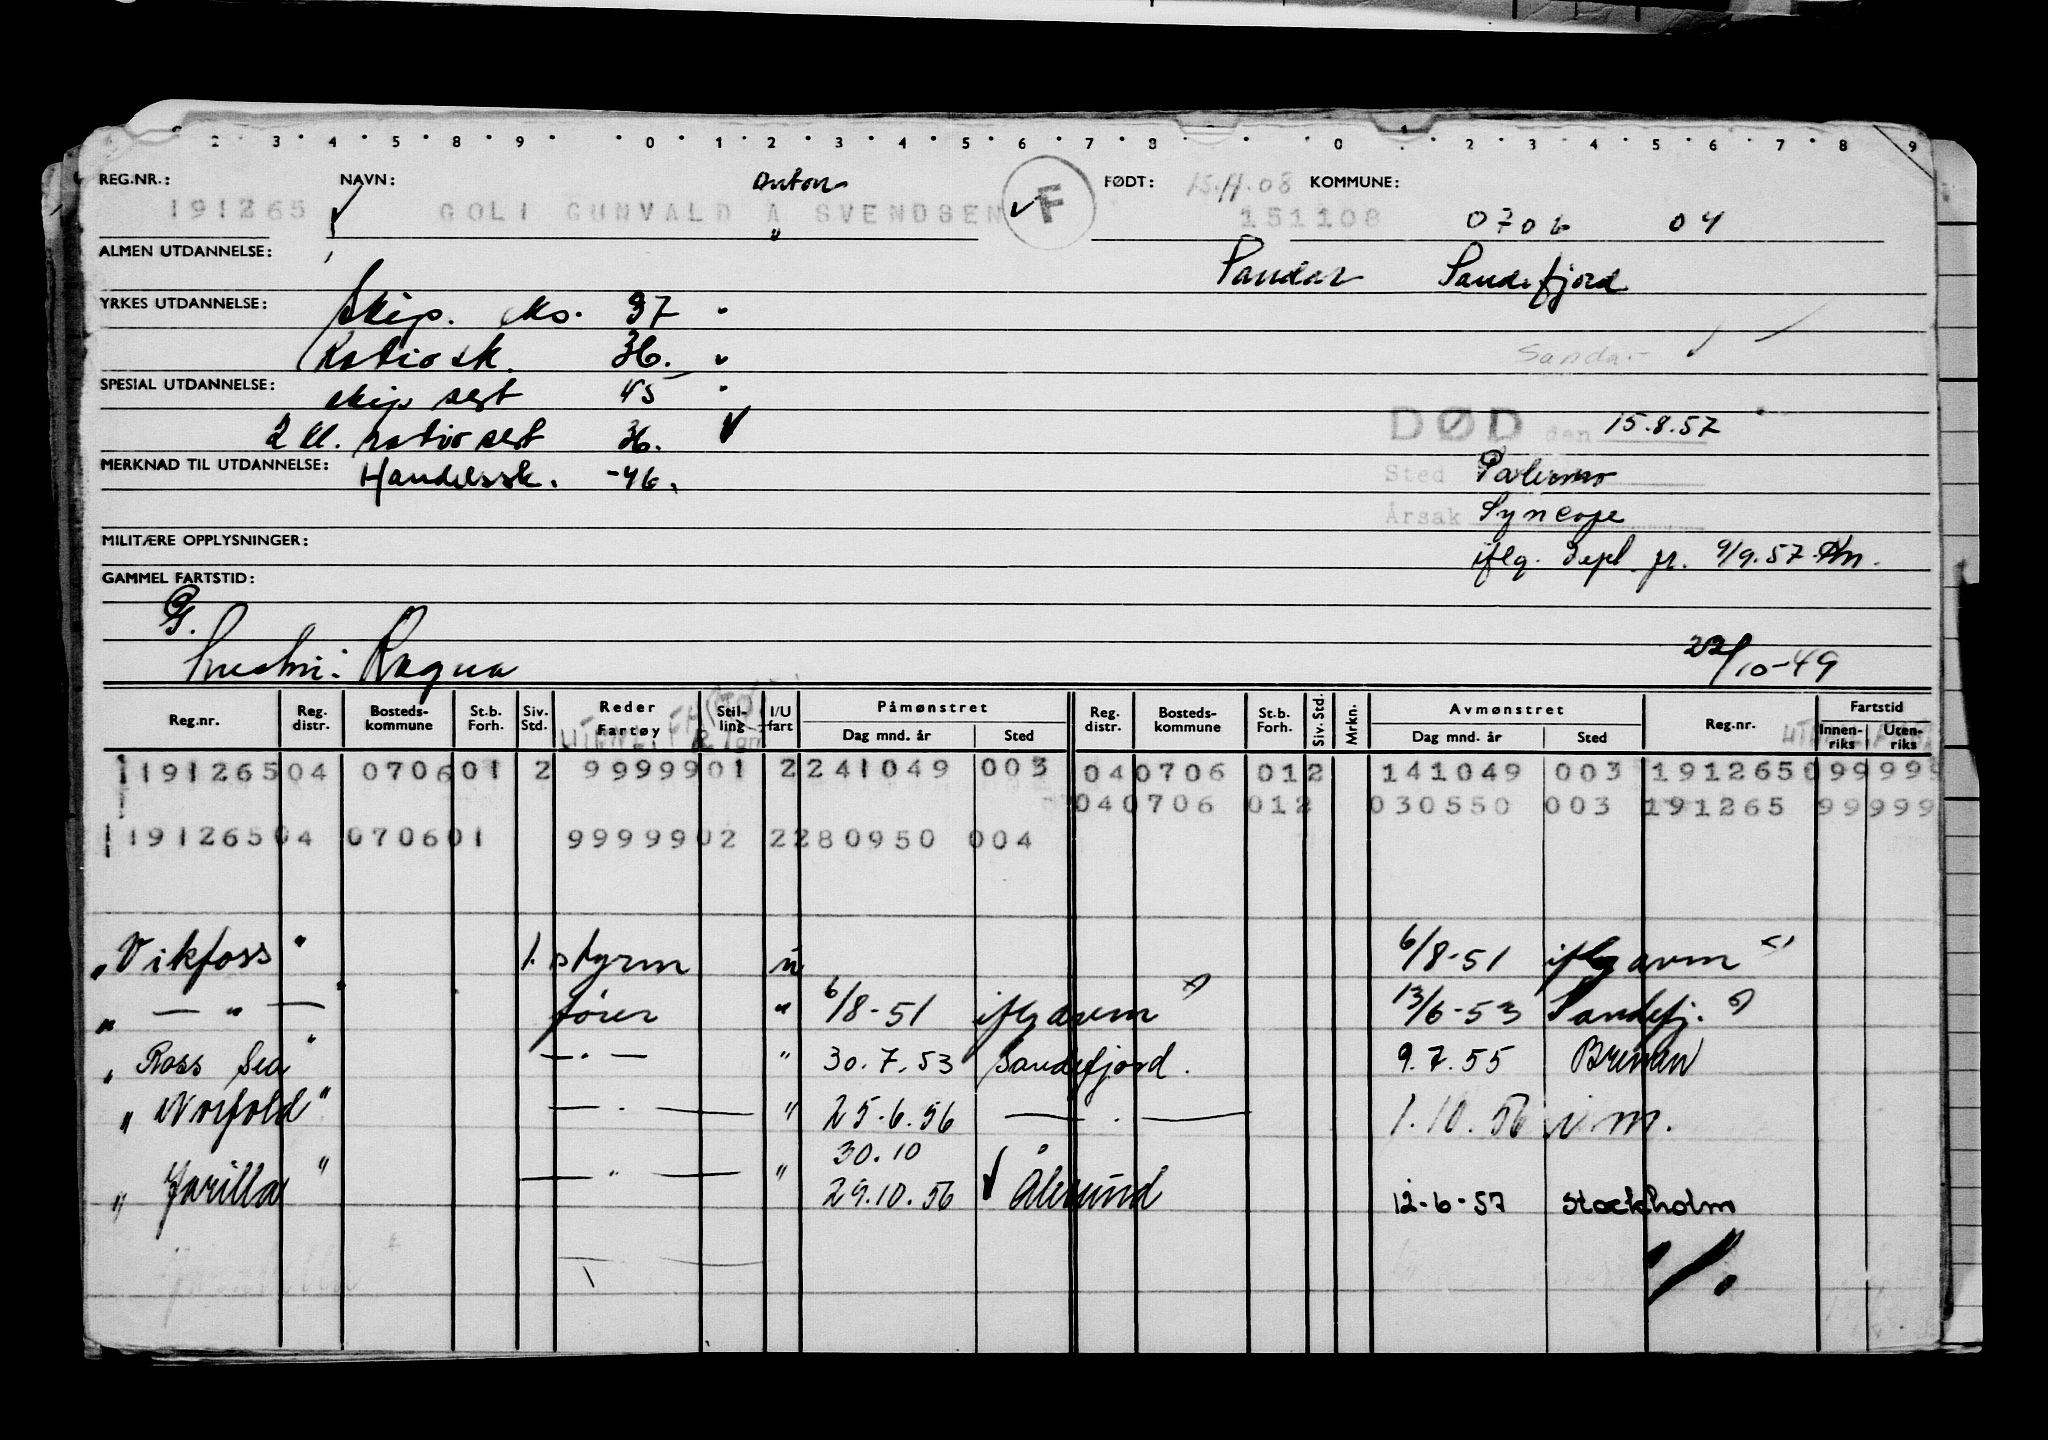 2 3 4 5 8 9 0 1 2 3 4 5 6 7 8 0 2 3 4 5 6 7 8 9
REG.NR.: NAVN: Anton FØDT: 15.11.08 KOMMUNE:
191265 GOLI GUNVALD A SVENDSEN F 151108 0706 04
ALMEN UTDANNELSE: Sandar Sandefjord
YRKES UTDANNELSE: Skip. eks. 37
Radiosk. 36. Sandar
SPESIAL UTDANNELSE: skip sert 45
2 kl. radio sert 36. DØD den 15.8.57
MERKNAD TIL UTDANNELSE: Handelssk. -46. Sted Palermo
Årsak Syncope
MILITÆRE OPPLYSNINGER: iflg. Depl. fr. 9/9.57
GAMMEL FARTSTID:
G.
Hustru: Ragna 22/10-49
Reg.nr. Reg. distr. Bosteds-kommune St.b. Forh. Siv. Std. Reder Fartøy Stil-ling I/U fart Påmønstret Dag mnd. år Sted Reg. distr. Bosteds-kommune St.b. Forh. Siv. Std. Mrkn. Avmønstret Dag mnd. år Sted Reg.nr. Fartstid Innen-riks Uten-riks
191265 04 0706 01 2 99999 01 2 241049 003 04 0706 01 2 141049 003 191265 099999
04 0706 01 2 030550 003 191265 99999
191265 04 0706 01 99999 02 2 280950 004
"Vikfoss" 1. styrm u 6/8-51 iflg avm
" — " — fører " 6/8-51 iflg avm 13/6-53 Sandefj.
"Ross Sea" — " — " 30.7.53 Sandefjord. 9.7.55 Bremen
"Norfold" — " — " 25.6.56 — " — 1.10.56 i.m.
30.10
"Jarilla" — " — " 29.10.56 Ålesund 12-6-57 Stockholm
./.